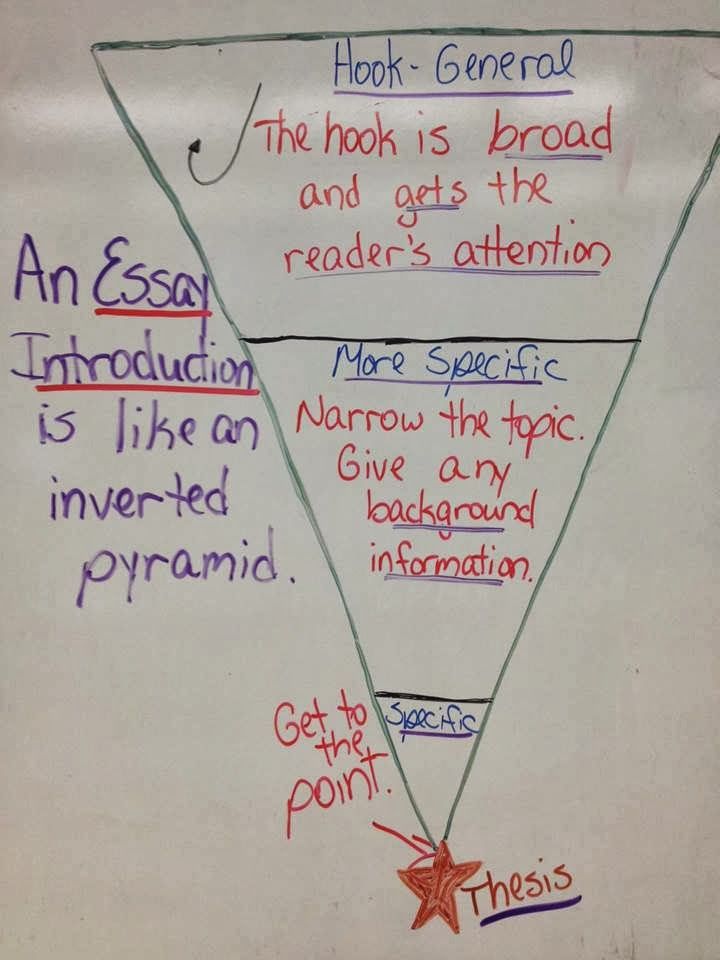 Hook - General
The hook is broad
and gets the
reader's attention
An Essay
Introduction
is like an
inverted
pyramid.
More Specific
Narrow the topic.
Give any
background
information.
Specific
Get to
the
point.
Thesis